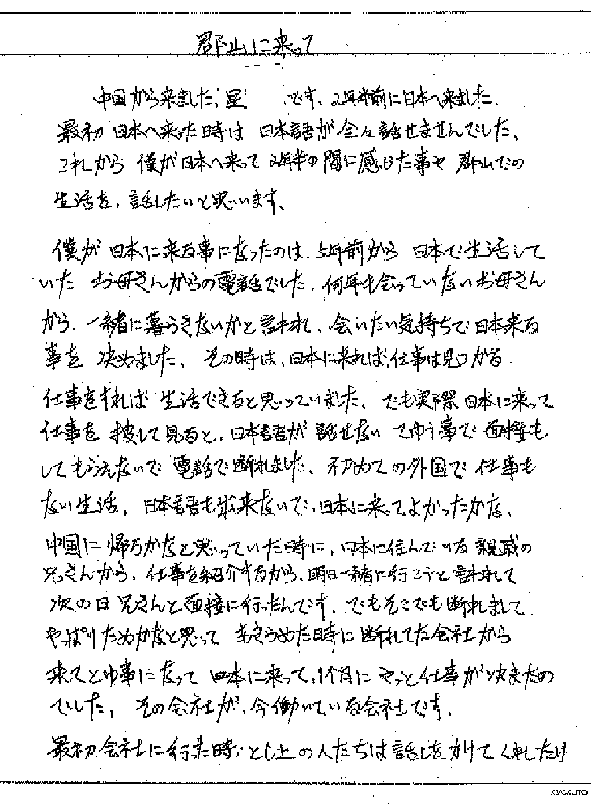 郡山に来って
中国から来ました、星 です、2年半前に日本へ来ました。
最初 日本へ来た時は 日本語が全々話せませんでした、
これから 僕が日本へ来って 2年半の間に感じた事や 郡山での
生活を、話したいと思います。
僕が日本に来る事になったのは 5年前から 日本で生活して
いた お母さんからの電話でした。何年も会っていないお母さん
から、一緒に暮らさないかと言われ、会いたい気持ちで日本来る
事を 決めました、その時は、日本に来れば、仕事は見つかる
仕事をすれば 生活できると思っていました、でも実際日本に来って
仕事を 捜して見ると、日本語が話せない てゆう事で 面接も
してもらえないで 電話で断れました、初めての外国で 仕事も
ない生活、日本語も出来ないで、日本に来ってよかったかな、
中国に帰ろかなと思っていた時に、日本に住んでいる親戚の
兄さんから、仕事を紹介するから、明日一緒に行こうと言われて
次の日 兄さんと面接に行ったんです。でもそこでも断れまして
やっぱりだめかなと思って あきらめた時に断れてた会社から
来てと ゆ事になって 日本に来って、1ヶ月に やっと仕事が決またの
でした、その会社が、今働いている会社です。
最初会社に行た時、とし上の人たちは話しをかけてくれたけ